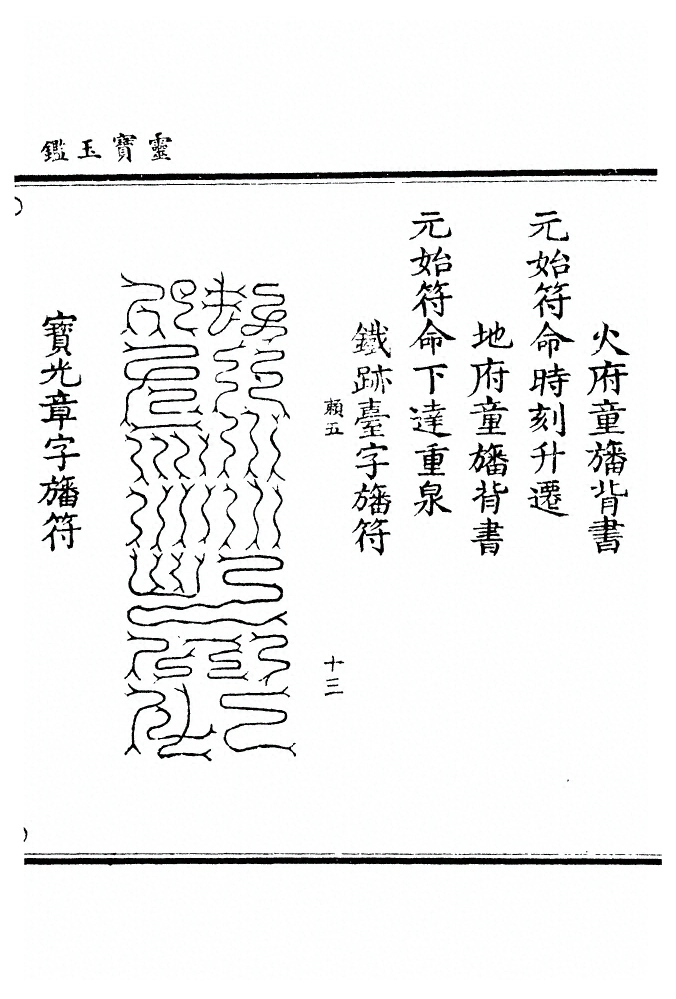 靈寶玉鑑
火府童旛背書
元始符命時刻升遷
地府童旛背書
元始符命下達重泉
鐵跡臺字旛符
賴五
十三
寶光章字旛符